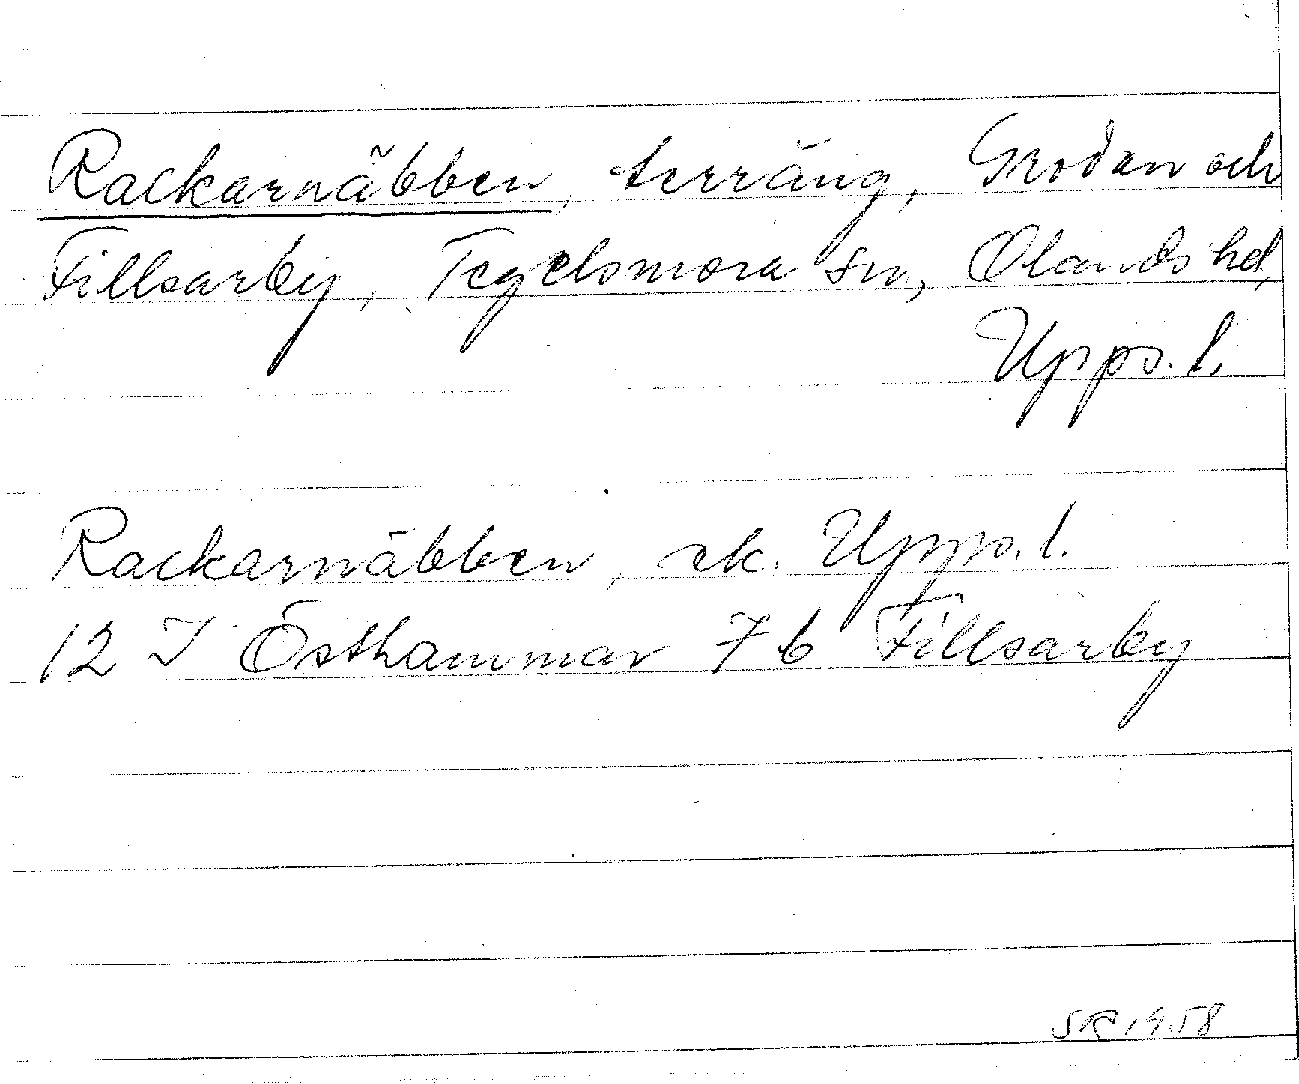 Rackarnäbben, terräng, Grodan och
Fillsarby, Tegelsmora sn, Olands hd,
Upps. l.
Rackarnäbben, ek. Upps. l.
12 I Östhammar 7 b Fillsarby
SR 1958